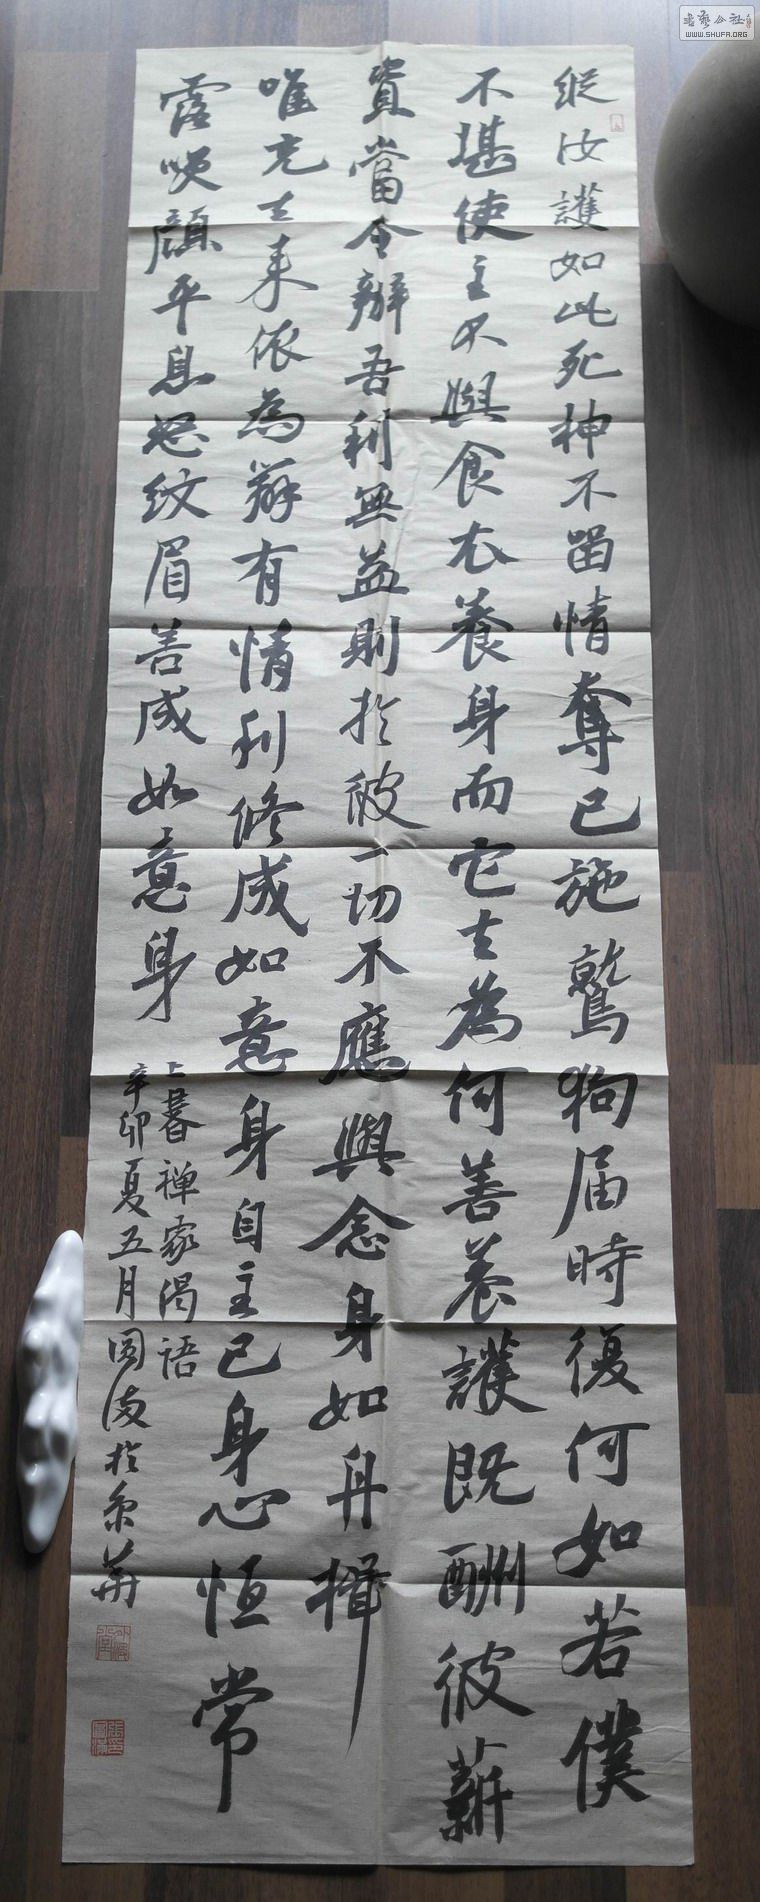 縱汝護如此死神不留情奪已施鷲狗届時復何如若僕
不堪使主不與食衣養身而它去為何善養護既酬彼薪
資當令辦吾利無益則於彼一切不應與念身如舟楫
唯充去來依為辦有情利修成如意身自主已身心恒常
露笑顔平息怒紋眉善成如意身
上暮禅家偈语
辛卯夏五月圆满於京華
書藝公社
WWW.SHUFA.ORG